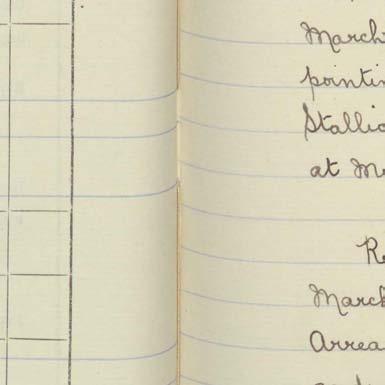 March
pointin
Stallio
at M
Re
March
Arrea